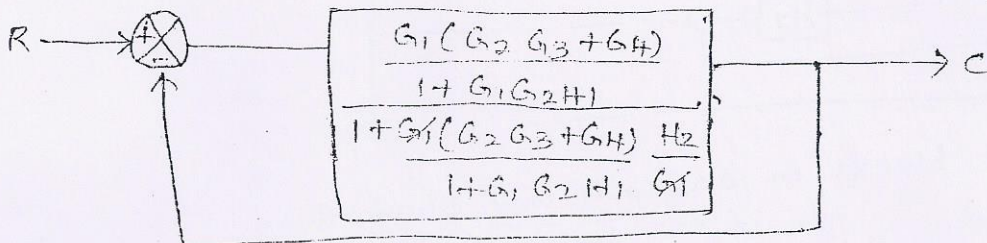 R
+
-
G1 (G2 G3 + G4)
1 + G1 G2 H1
1 + G1 (G2 G3 + G4) H2
1 + G1 G2 H1 G1
C